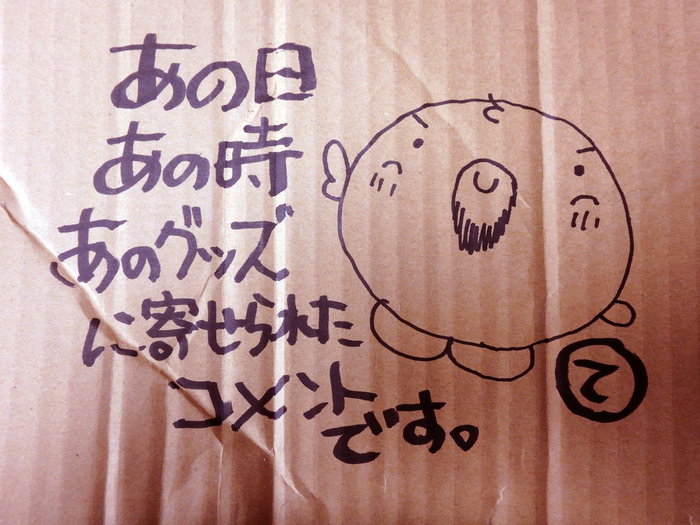 あの日
あの時
あのグッズ
に寄せられた
コメント
です。
て